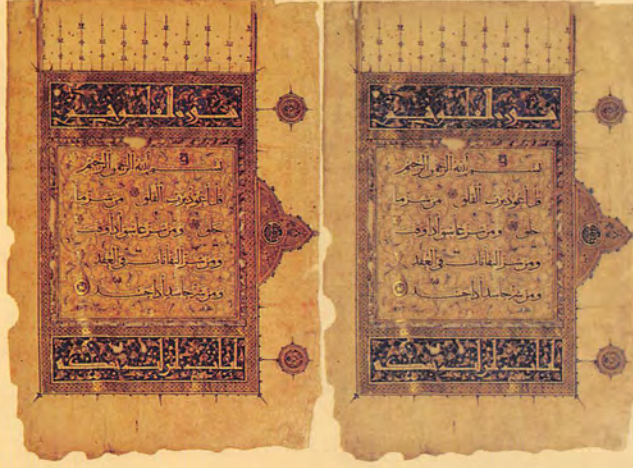 بسم الله الرحمن الرحيم
قل اعوذ برب الفلق من شر ما
خلق ومن شر غاسق اذا وقب
ومن شر النفاثات في العقد
ومن شر حاسد اذا حسد
بسم الله الرحمن الرحيم
قل اعوذ برب الفلق من شر ما
خلق ومن شر غاسق اذا وقب
ومن شر النفاثات في العقد
ومن شر حاسد اذا حسد